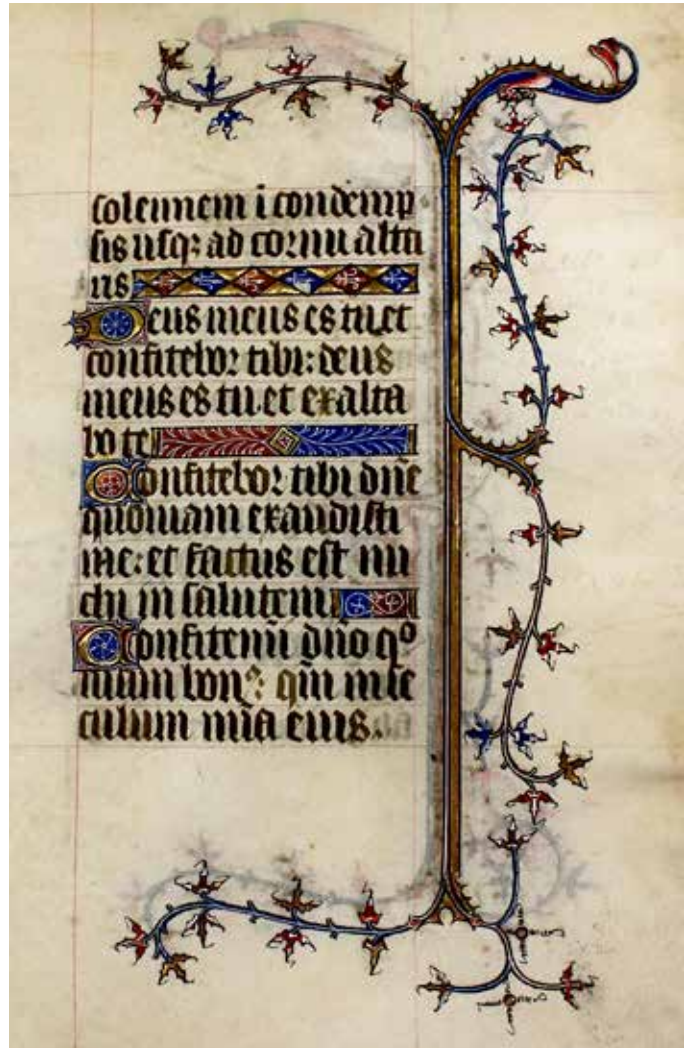 solennem i condemp
sis usq; ad cornu alta
ris
Deus meus es tu et
confitebor tibi: deus
meus es tu. et exalta
bo te
Confitebor tibi dñe
quoniam exaudisti
me: et factus est mi
chi in salutem
Confitemĩ dño qº
niam bonꝰ: qm̃ in se
culum mĩa eius.